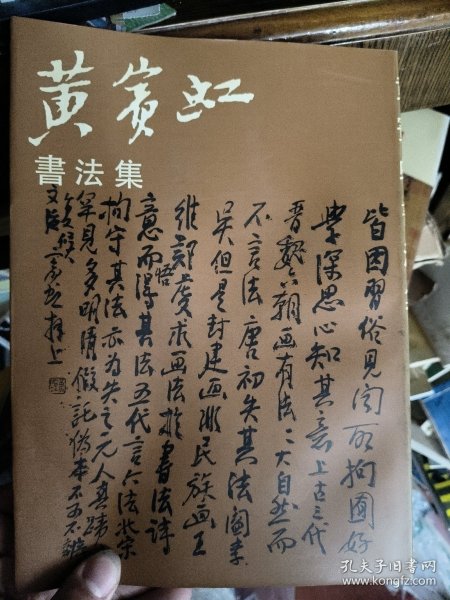 黄宾虹
書法集
皆因習俗見闻所拘囿好
學深思心知其意上古三代
晋魏六朝画有法二大自然而
不言法唐初失其法阎立
吴但是封建画非民族画王
維郭虔求画法於書法詩
意而得其法五代言六法北宋
悟
拘守其法亦为失之元人真跡
罕見多明清假託偽本不可不辨
孔夫子旧书网
www.kongfz.com